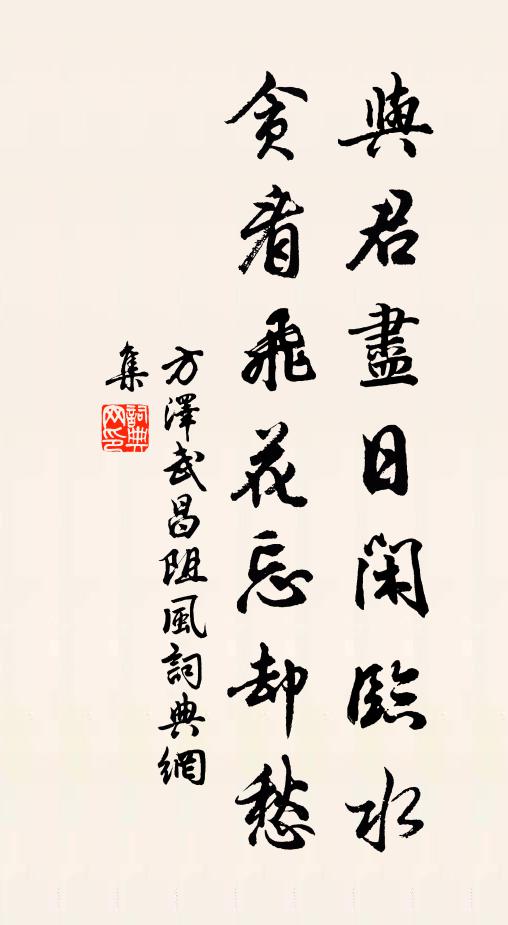 與君盡日閑臨水
貪看飛花忘却愁
方澤武昌阻風詞典網
集
詞典网印